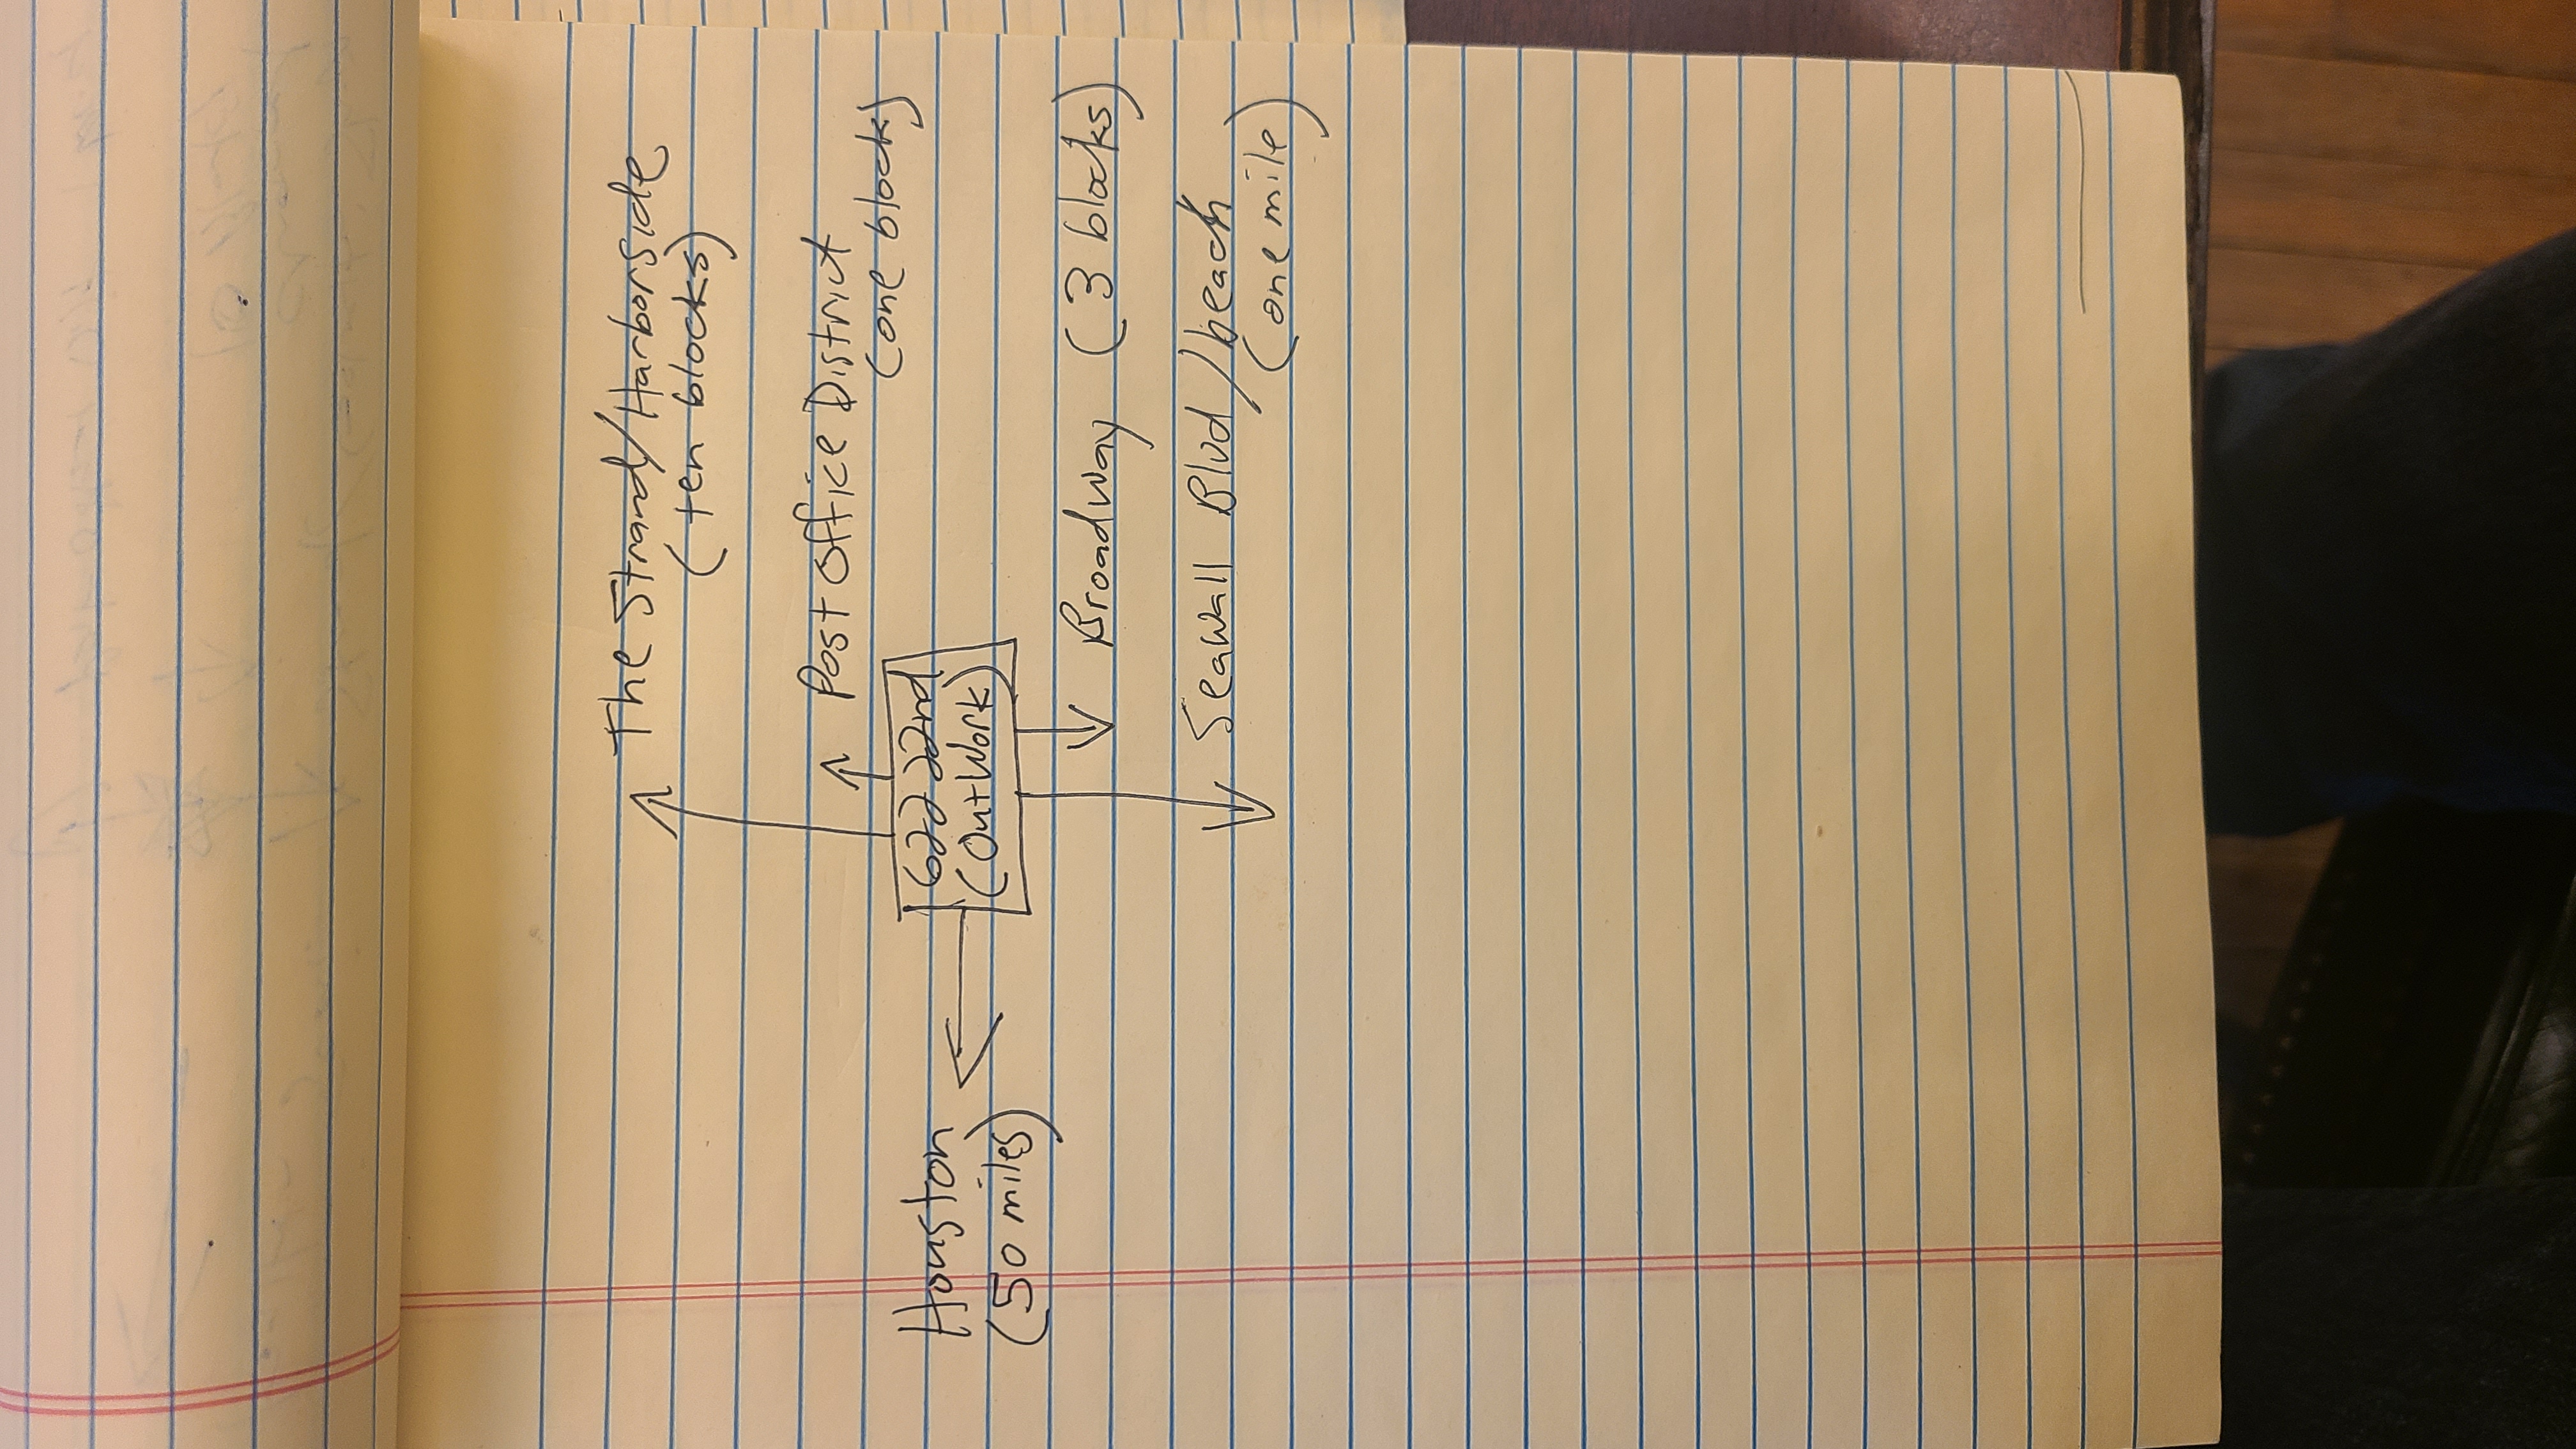 The Strand/Harborside
(ten blocks)
Post Office District
(one block)
622 22nd
(OutWork)
Houston
(50 miles)
Broadway (3 blocks)
Seawall Blvd/beach
(one mile)